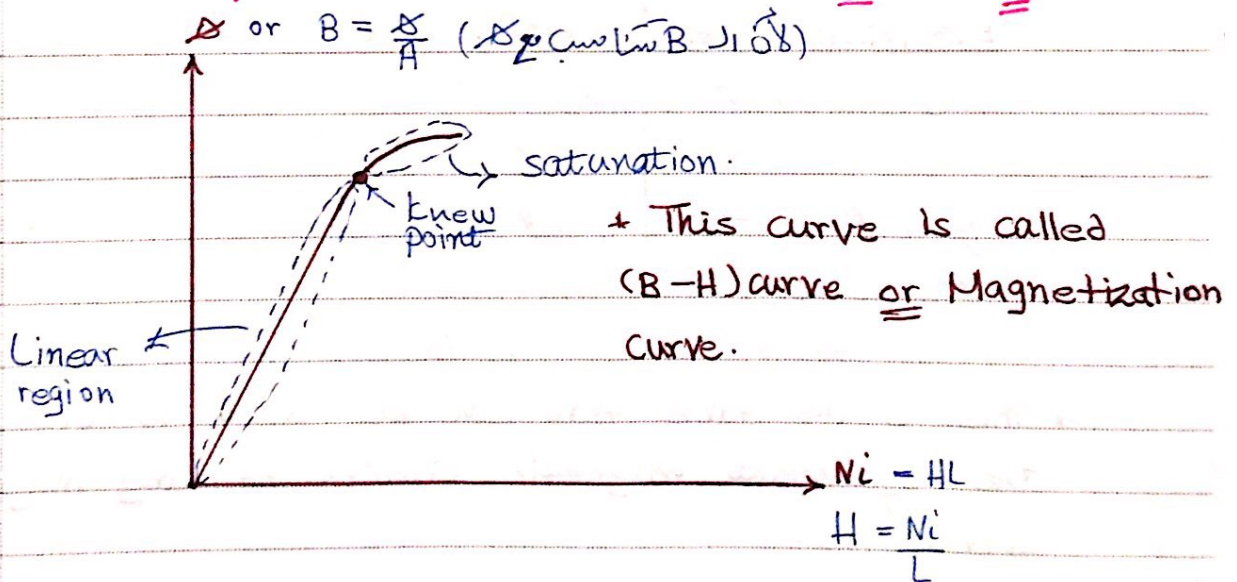 ϕ or B = ϕ/A (لأن الـ B تتناسب مع ϕ)
satunation.
knew
point
* This curve is called
(B-H) curve or Magnetization
curve.
Linear
region
Ni = HL
H = Ni/L